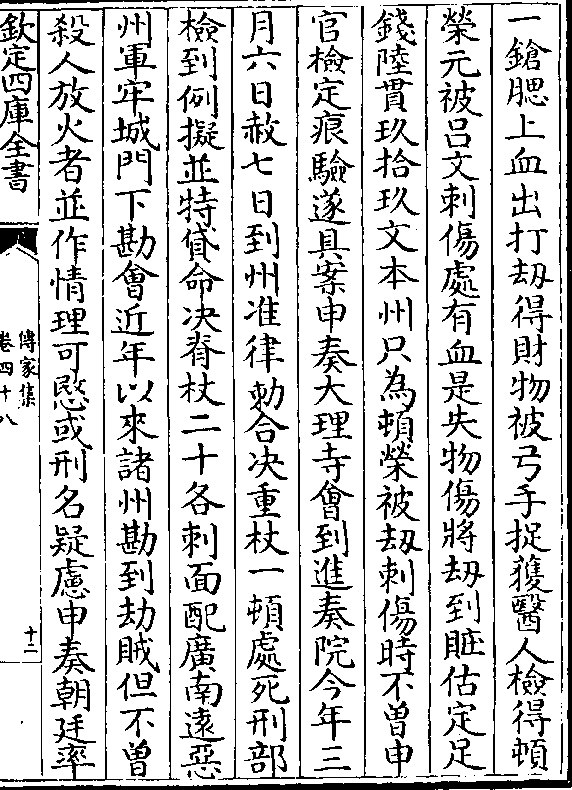 一鎗腮上血出打刼得財物被弓手捉獲醫人檢得頓
榮元被呂文刺傷處有血是失物傷將刼到賍估定足
錢陸貫玖拾玖文本州只為頓榮被刼刺傷時不曽申
官檢定痕驗遂具案申奏大理寺㑹到進奏院今年三
月六日赦七日到州准律勅合决重杖一頓處死刑部
檢到例擬並特貸命决脊杖二十各刺面配廣南逺惡
州軍牢城門下勘㑹近年以來諸州勘到劫賊但不曽
殺人放火者並作情理可愍或刑名疑慮申奏朝廷率
欽定四庫全書
傳家集
卷四十八
十二